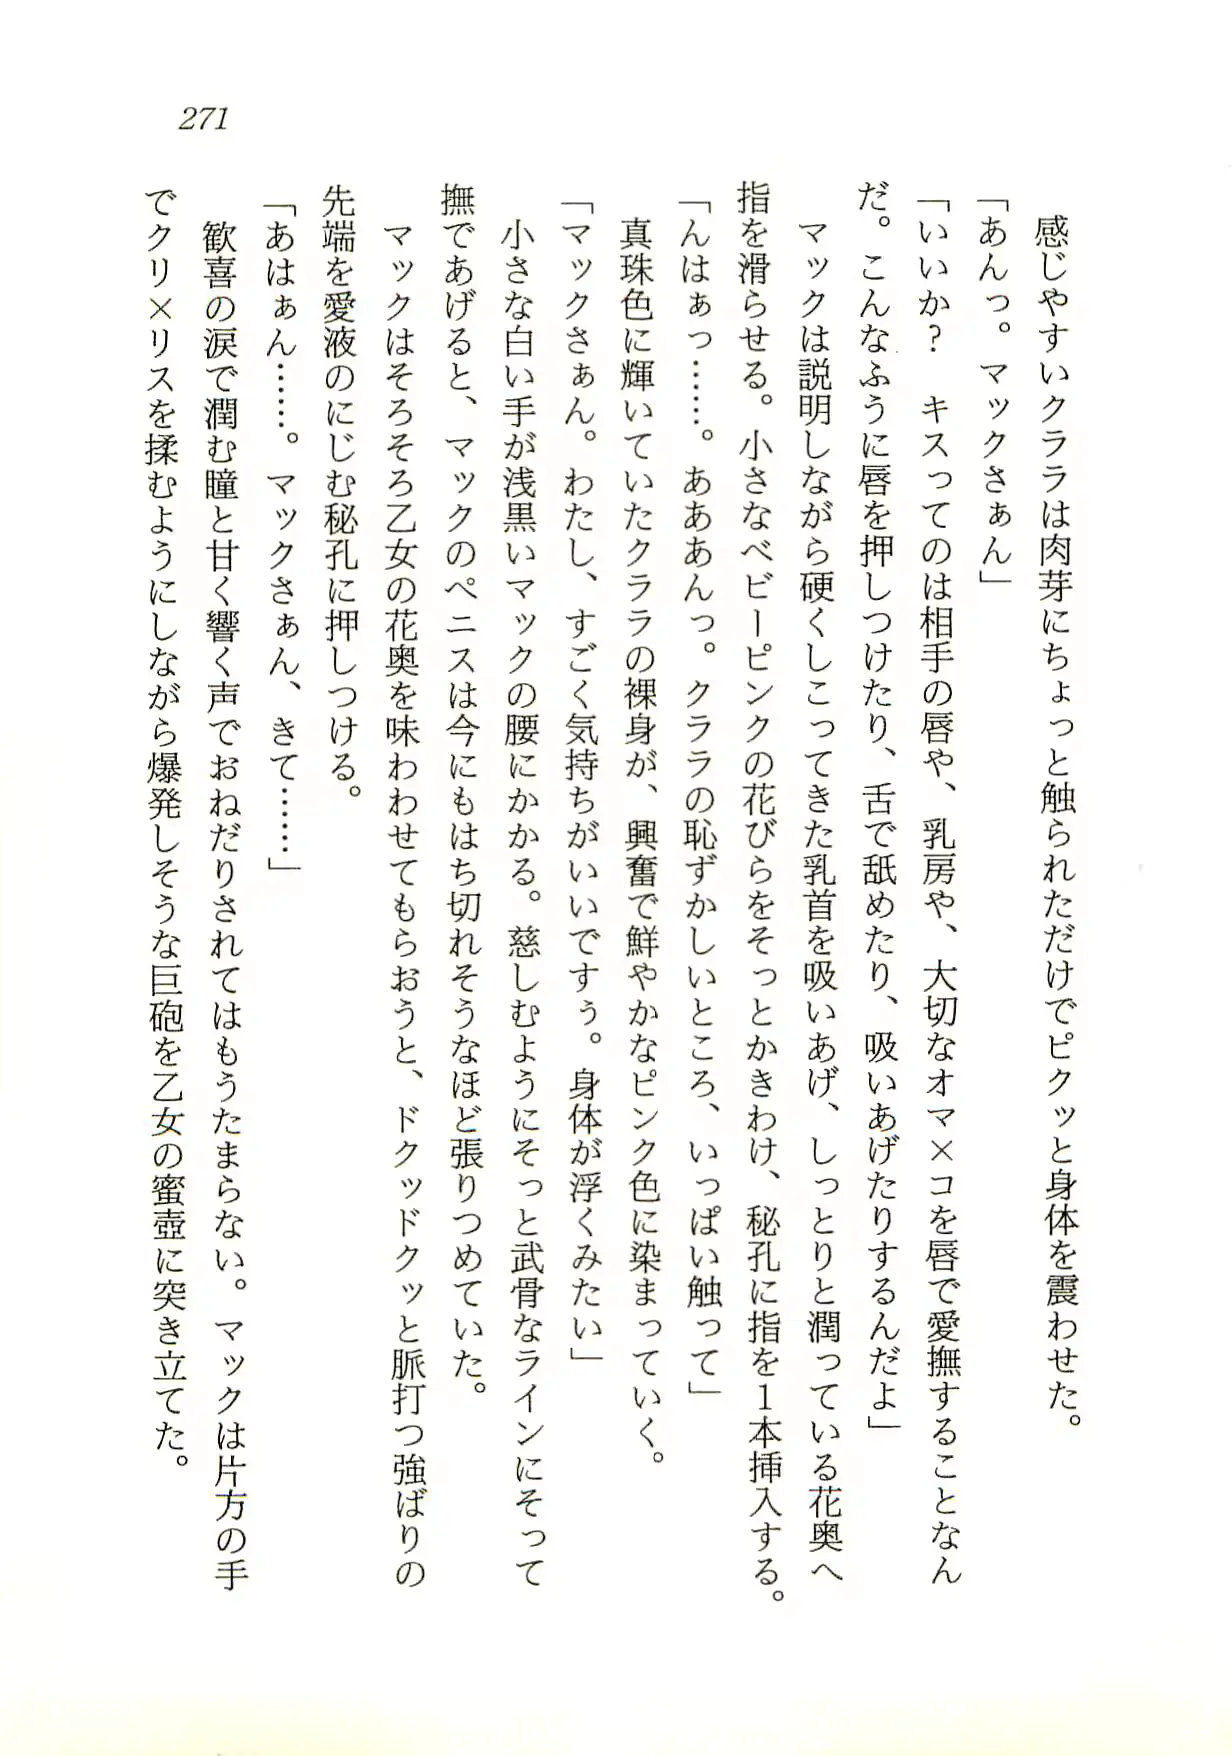 271
感じやすいクララは肉芽にちょっと触られただけでピクッと身体を震わせた。
「あんっ。マックさぁん」
「いいか?　キスってのは相手の唇や、乳房や、大切なオマ×コを唇で愛撫することなん
だ。こんなふうに唇を押しつけたり、舌で舐めたり、吸いあげたりするんだよ」
マックは説明しながら硬くしこってきた乳首を吸いあげ、しっとりと潤っている花奥へ
指を滑らせる。小さなベビーピンクの花びらをそっとかきわけ、秘孔に指を1本挿入する。
「んはぁっ……。あああんっ。クララの恥ずかしいところ、いっぱい触って」
真珠色に輝いていたクララの裸身が、興奮で鮮やかなピンク色に染まっていく。
「マックさぁん。わたし、すごく気持ちがいいですぅ。身体が浮くみたい」
小さな白い手が浅黒いマックの腰にかかる。慈しむようにそっと武骨なラインにそって
撫であげると、マックのペニスは今にもはち切れそうなほど張りつめていた。
マックはそろそろ乙女の花奥を味わわせてもらおうと、ドクッドクッと脈打つ強ばりの
先端を愛液のにじむ秘孔に押しつける。
「あはぁん……。マックさぁん、きて……」
歓喜の涙で潤む瞳と甘く響く声でおねだりされてはもうたまらない。マックは片方の手
でクリ×リスを揉むようにしながら爆発しそうな巨砲を乙女の蜜壺に突き立てた。